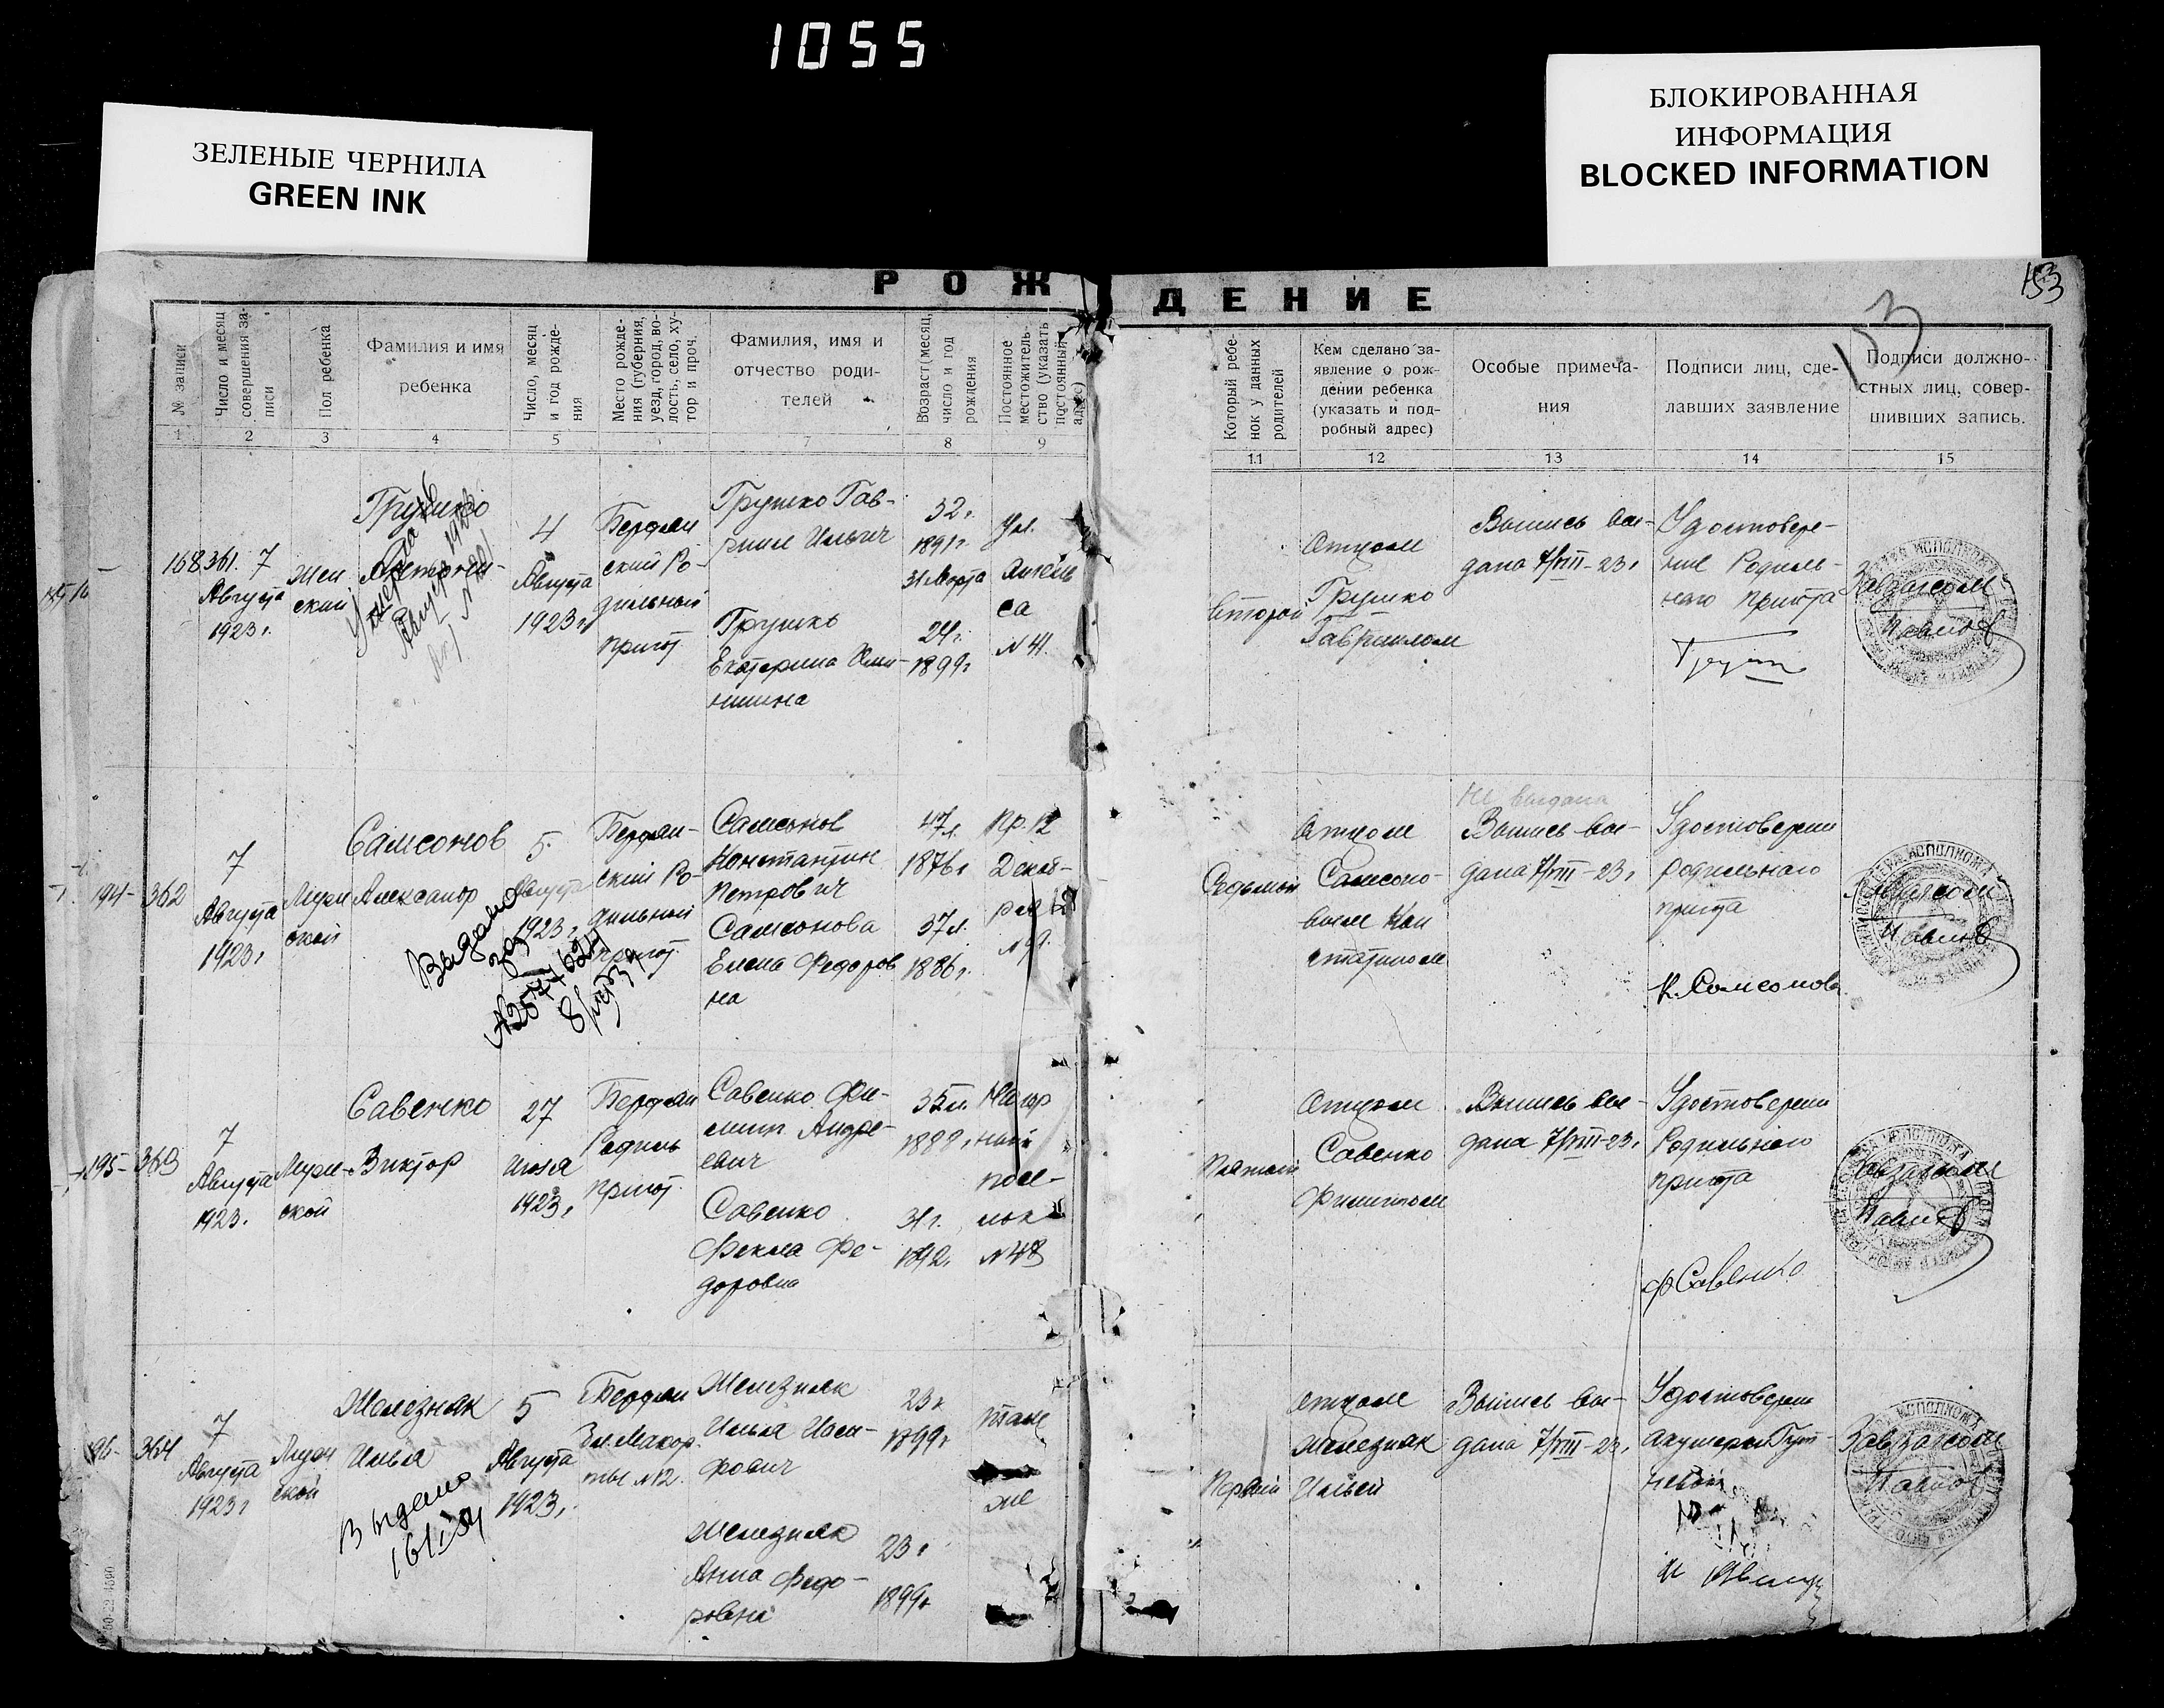 1055
ЗЕЛЕНЫЕ ЧЕРНИЛА
GREEN INK
БЛОКИРОВАННАЯ
ИНФОРМАЦИЯ
BLOCKED INFORMATION
РОЖДЕНИЕ
153
№ записи
Число и месяц
совершения за-
писи
Пол ребенка
Фамилия и имя
ребенка
Число, месяц
и год рожде-
ния
Место рожде-
ния (губерния,
уезд, город, во-
лость, село, ху-
тор и проч.
Фамилия, имя и
отчество роди-
телей
Возраст (месяц,
число и год
рождения
Постоянное
местожитель-
ство (указать
постоянный
адрес)
Который ребе-
нок у данных
родителей
Кем сделано за-
явление о рож-
дении ребенка
(указать и под-
робный адрес)
Особые примеча-
ния
Подписи лиц, сде-
лавших заявление
Подписи должно-
стных лиц, совер-
шивших запись.
1 2 3 4 5 7 8 9 11 12 13 14 15
168 361.
7
Августа
1923 г.
Жен
ский
Грушко
4
Августа
1923 г.
Бердян
ский Ро-
дильный
приют
Грушко Гав-
риил Ильич
Грушко
Екатерина
32 г.
1891 г.
31 Марта
24 г.
1899 г.
Ул.
Энгель
са
№ 41.
Второй
Отцом
Грушко
Гавриилом
Выпись вы-
дана 7/VIII-23 г.
Удостовере-
ние Родиль-
ного приюта
Завзагсом
194- 362
7
Августа
1923 г.
Мужской
Самсонов
Александр
5
Августа
1923 г.
Выдано
Бердян-
ский Ро-
дильный
приют
Самсонов
Константин
Петрович
Самсонова
Елена Федоров
на
47 л.
1876 г.
37 л.
1886 г.
Пр. 12
Декаб-
ря
Седьмой
Отцом
Самсоно-
вым Кон
стантином
Не выдана
Выпись вы-
дана 7/VIII-23 г.
Удостоверение
родильного
приюта
К. Самсонов
Завзагсом
195- 363
7
Августа
1923 г.
Мужской
Савенко
Виктор
27
Июля
1923 г.
Бердян
Родиль
приют.
Савенко Фи-
липп Андре-
евич
Савенко
Фекла Фе-
доровна
35 л.
1888 г.
31 г.
1892 г.
Нагор
ный
посе-
лок
№ 48
Пятый
Отцом
Савенко
Филиппом
Выпись вы-
дана 7/VIII-23 г.
Удостоверение
Родильного
приюта
Ф Савенко
Завзагсом
196- 364
7
Августа
1923 г.
Мужской
Железняк
Илья
Выдано
5
Августа
1923 г.
Бердян
№ 12.
Железняк
Илья Иоси-
фович
Железняк
Анна Федо-
ровна
23 г.
1899 г.
23 г.
1899 г.
там
же
Первый
Отцом
Железняк
Ильей
Выпись вы-
дана 7/VIII-23 г.
Удостоверение
акушерки
Завзагсом